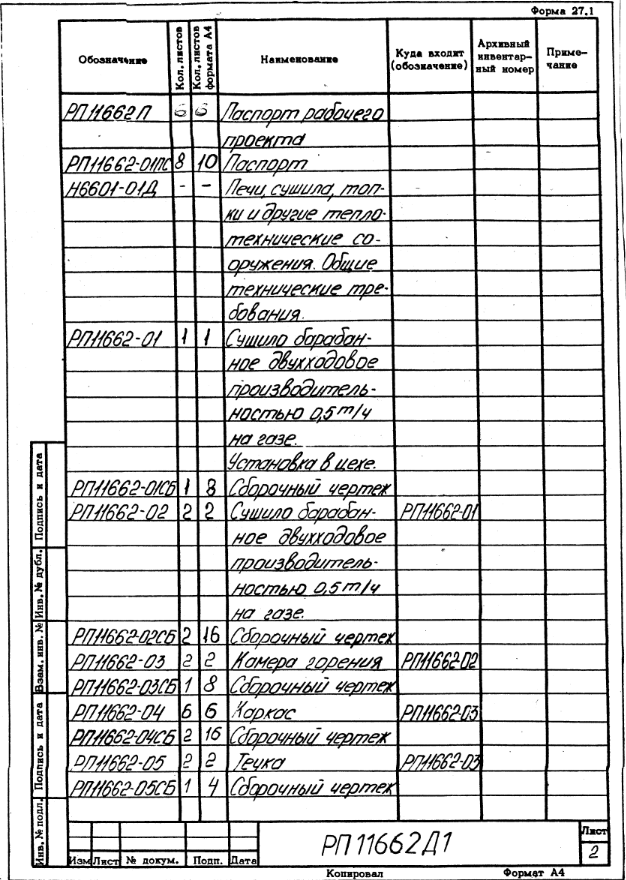 Форма 27.1
Обозначение Кол. листов Кол. листов формата А4 Наименование Куда входит (обозначение) Архивный инвентарный номер Примечание
РП11662П 6 6 Паспорт рабочего
проекта
РП11662-01ПС 8 10 Паспорт
Н6601-01Д - - Печи, сушила, топ-
ки и другие тепло-
технические со-
оружения. Общие
технические тре-
бования.
РП11662-01 1 1 Сушило барабан-
ное двухходовое
производитель-
ностью 0,5 т/ч
на газе.
Установка в цехе.
РП11662-01СБ 1 8 Сборочный чертеж
РП11662-02 2 2 Сушило барабан- РП11662-01
ное двухходовое
производитель-
ностью 0,5 т/ч
на газе.
РП11662-02СБ 2 16 Сборочный чертеж
РП11662-03 2 2 Камера горения РП11662-02
РП11662-03СБ 1 8 Сборочный чертеж
РП11662-04 6 6 Каркас РП11662-03
РП11662-04СБ 2 16 Сборочный чертеж
РП11662-05 2 2 Течка РП11662-03
РП11662-05СБ 1 4 Сборочный чертеж
Инв. № подл. Подпись и дата Взам. инв. № Инв. № дубл. Подпись и дата
РП 11662Д1
Лист
2
Изм Лист № докум. Подп. Дата
Копировал Формат А4